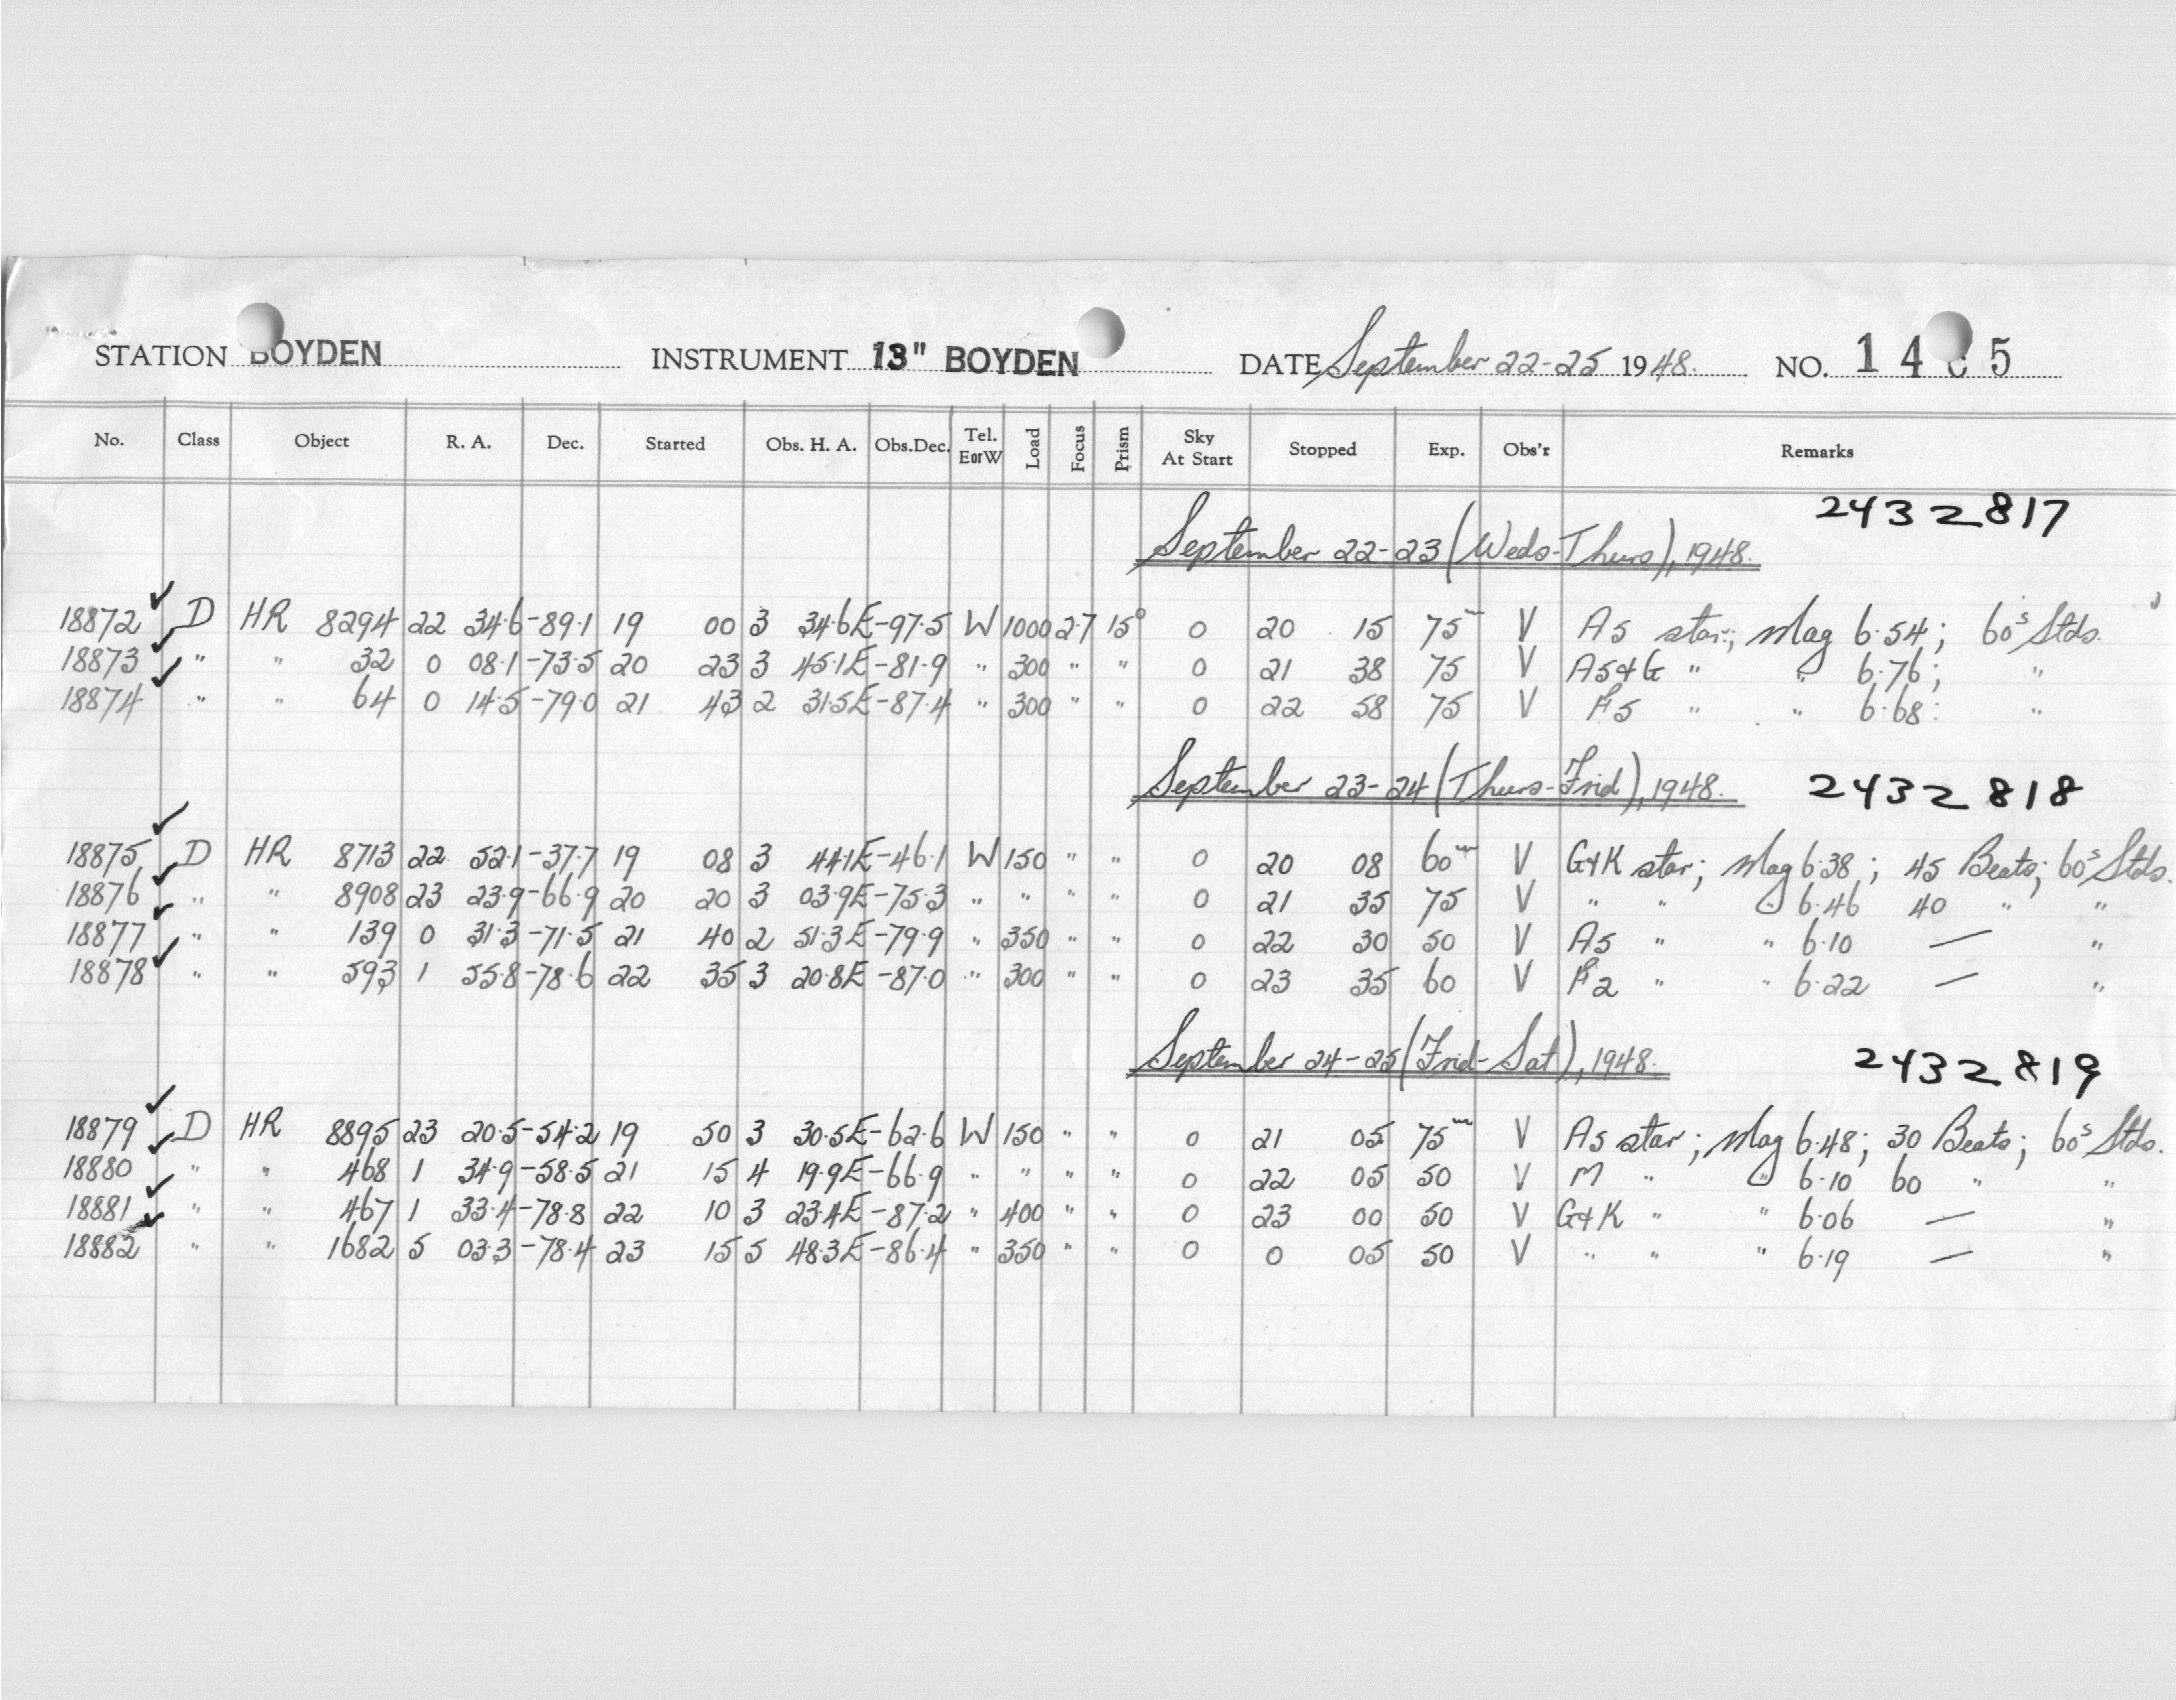 STATION BOYDEN INSTRUMENT 13" BOYDEN DATE September 22-25 1948. NO. 14 5
No. Class Object R. A. Dec. Started Obs. H. A. Obs.Dec. Tel. E or W Load Focus Prism Sky At Start Stopped Exp. Obs'r Remarks
2432817
September 22-23 (Weds-Thurs), 1948.
18872 ✓ D HR 8294 22 34.6 -89.1 19 00 3 34.6E -97.5 W 1000 27 15° 0 20 15 75m V A5 star; Mag 6.54; 60s Stds.
18873 ✓ " " 32 0 08.1 -73.5 20 23 3 45.1E -81.9 " 300 " " 0 21 38 75 V A5&G " " 6.76; "
18874 ✓ " " 64 0 14.5 -79.0 21 43 2 31.5E -87.4 " 300 " " 0 22 58 75 V F5 " " 6.68: "
September 23-24 (Thurs-Frid), 1948. 2432818
18875 ✓ D HR 8713 22 52.1 -37.7 19 08 3 44.1E -46.1 W 150 " " 0 20 08 60m V G&K star; Mag 6.38; 45 Beats; 60s Stds.
18876 ✓ " " 8908 23 23.9 -66.9 20 20 3 03.9E -75.3 " " " " 0 21 35 75 V " " " 6.46 40 " "
18877 ✓ " " 139 0 31.3 -71.5 21 40 2 51.3E -79.9 " 350 " " 0 22 30 50 V A5 " " 6.10 — "
18878 ✓ " " 593 1 55.8 -78.6 22 35 3 20.8E -87.0 " 300 " " 0 23 35 60 V F2 " " 6.22 — "
September 24-25 (Frid-Sat), 1948. 2432819
18879 ✓ D HR 8895 23 20.5 -54.2 19 50 3 30.5E -62.6 W 150 " " 0 21 05 75m V A5 star; Mag 6.48; 30 Beats; 60s Stds.
18880 ✓ " " 468 1 34.9 -58.5 21 15 4 19.9E -66.9 " " " " 0 22 05 50 V M " " 6.10 60 " "
18881 ✓ " " 467 1 33.4 -78.8 22 10 3 23.4E -87.2 " 400 " " 0 23 00 50 V G&K " " 6.06 — "
18882 ✓ " " 1682 5 03.3 -78.4 23 15 5 48.3E -86.4 " 350 " " 0 0 05 50 V " " " 6.19 — "